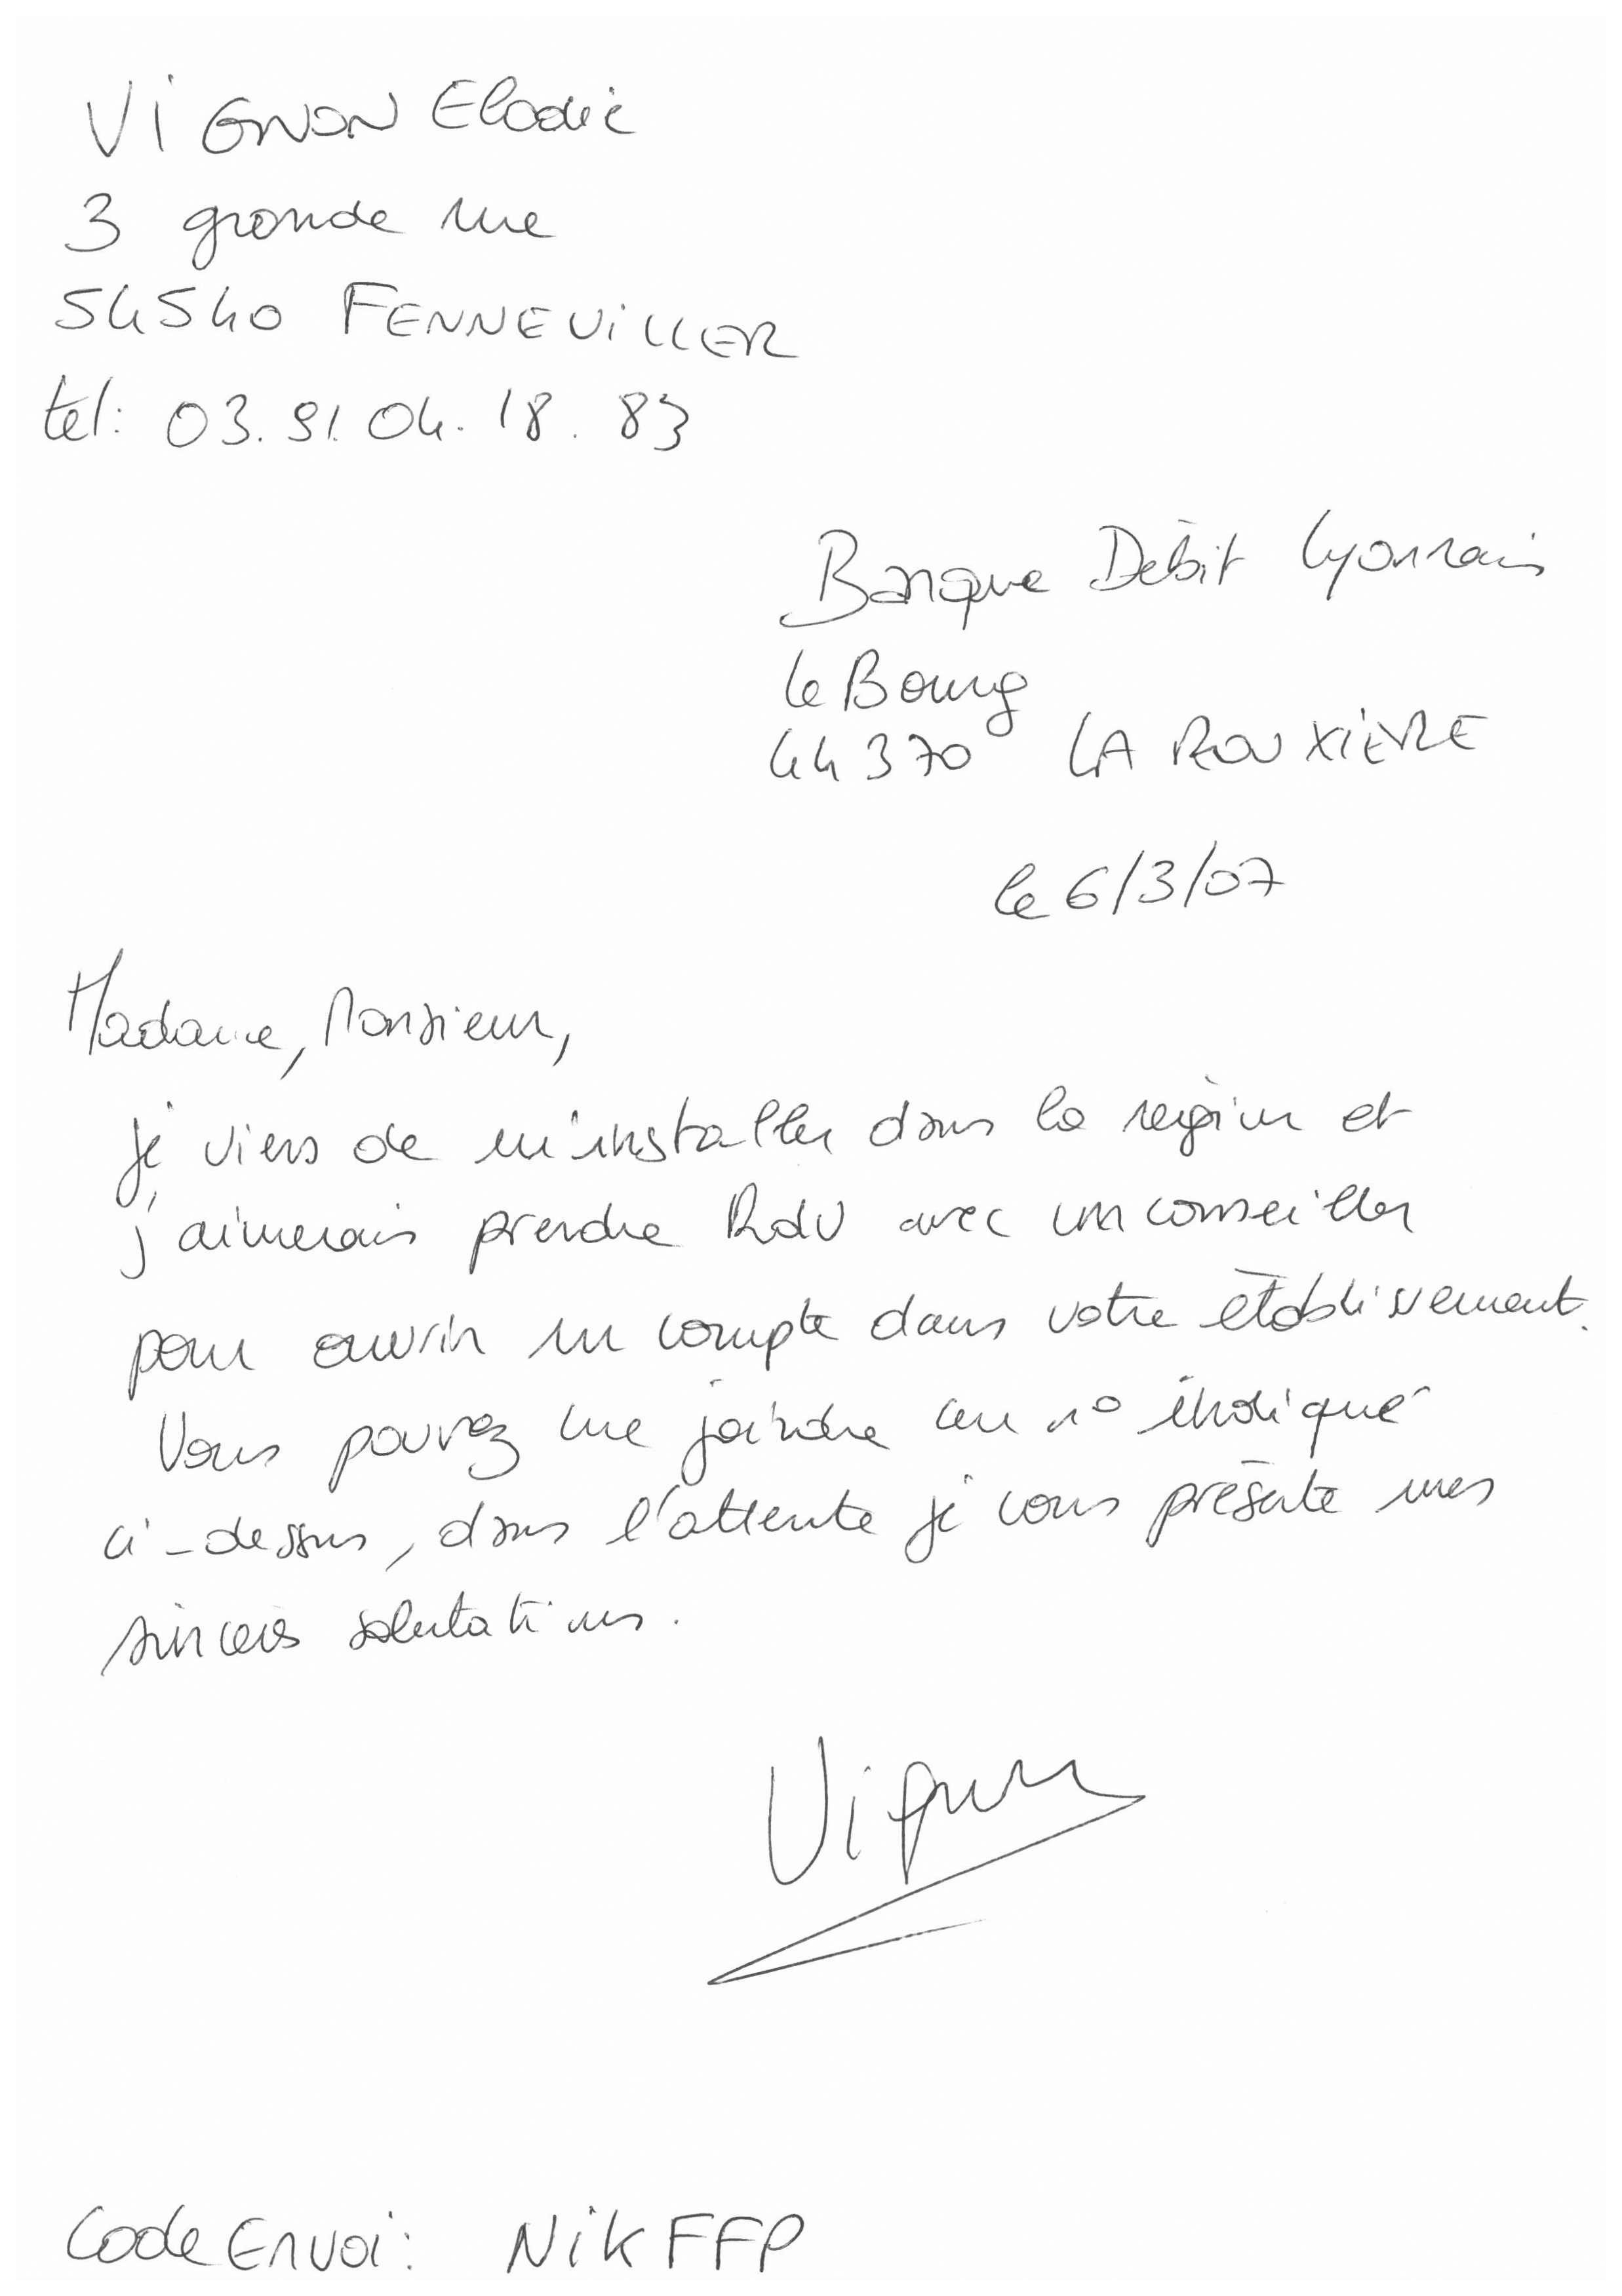 VIGNON Elodie
3 grande rue
54540 FENNEVILLER
tel: 03.91.04.18.83
Banque Débit Lyonnais
le Bourg
44370 LA ROUXIÈRE
le 6/3/07
Madame, Monsieur,
je viens de m'installer dans la région et
j'aimerais prendre RdV avec un conseiller
pour ouvrir un compte dans votre établissement.
Vous pouvez me joindre au n° indiqué
ci-dessus, dans l'attente je vous présente mes
sincères salutations.
Vignon
Code Envoi: NikFFP